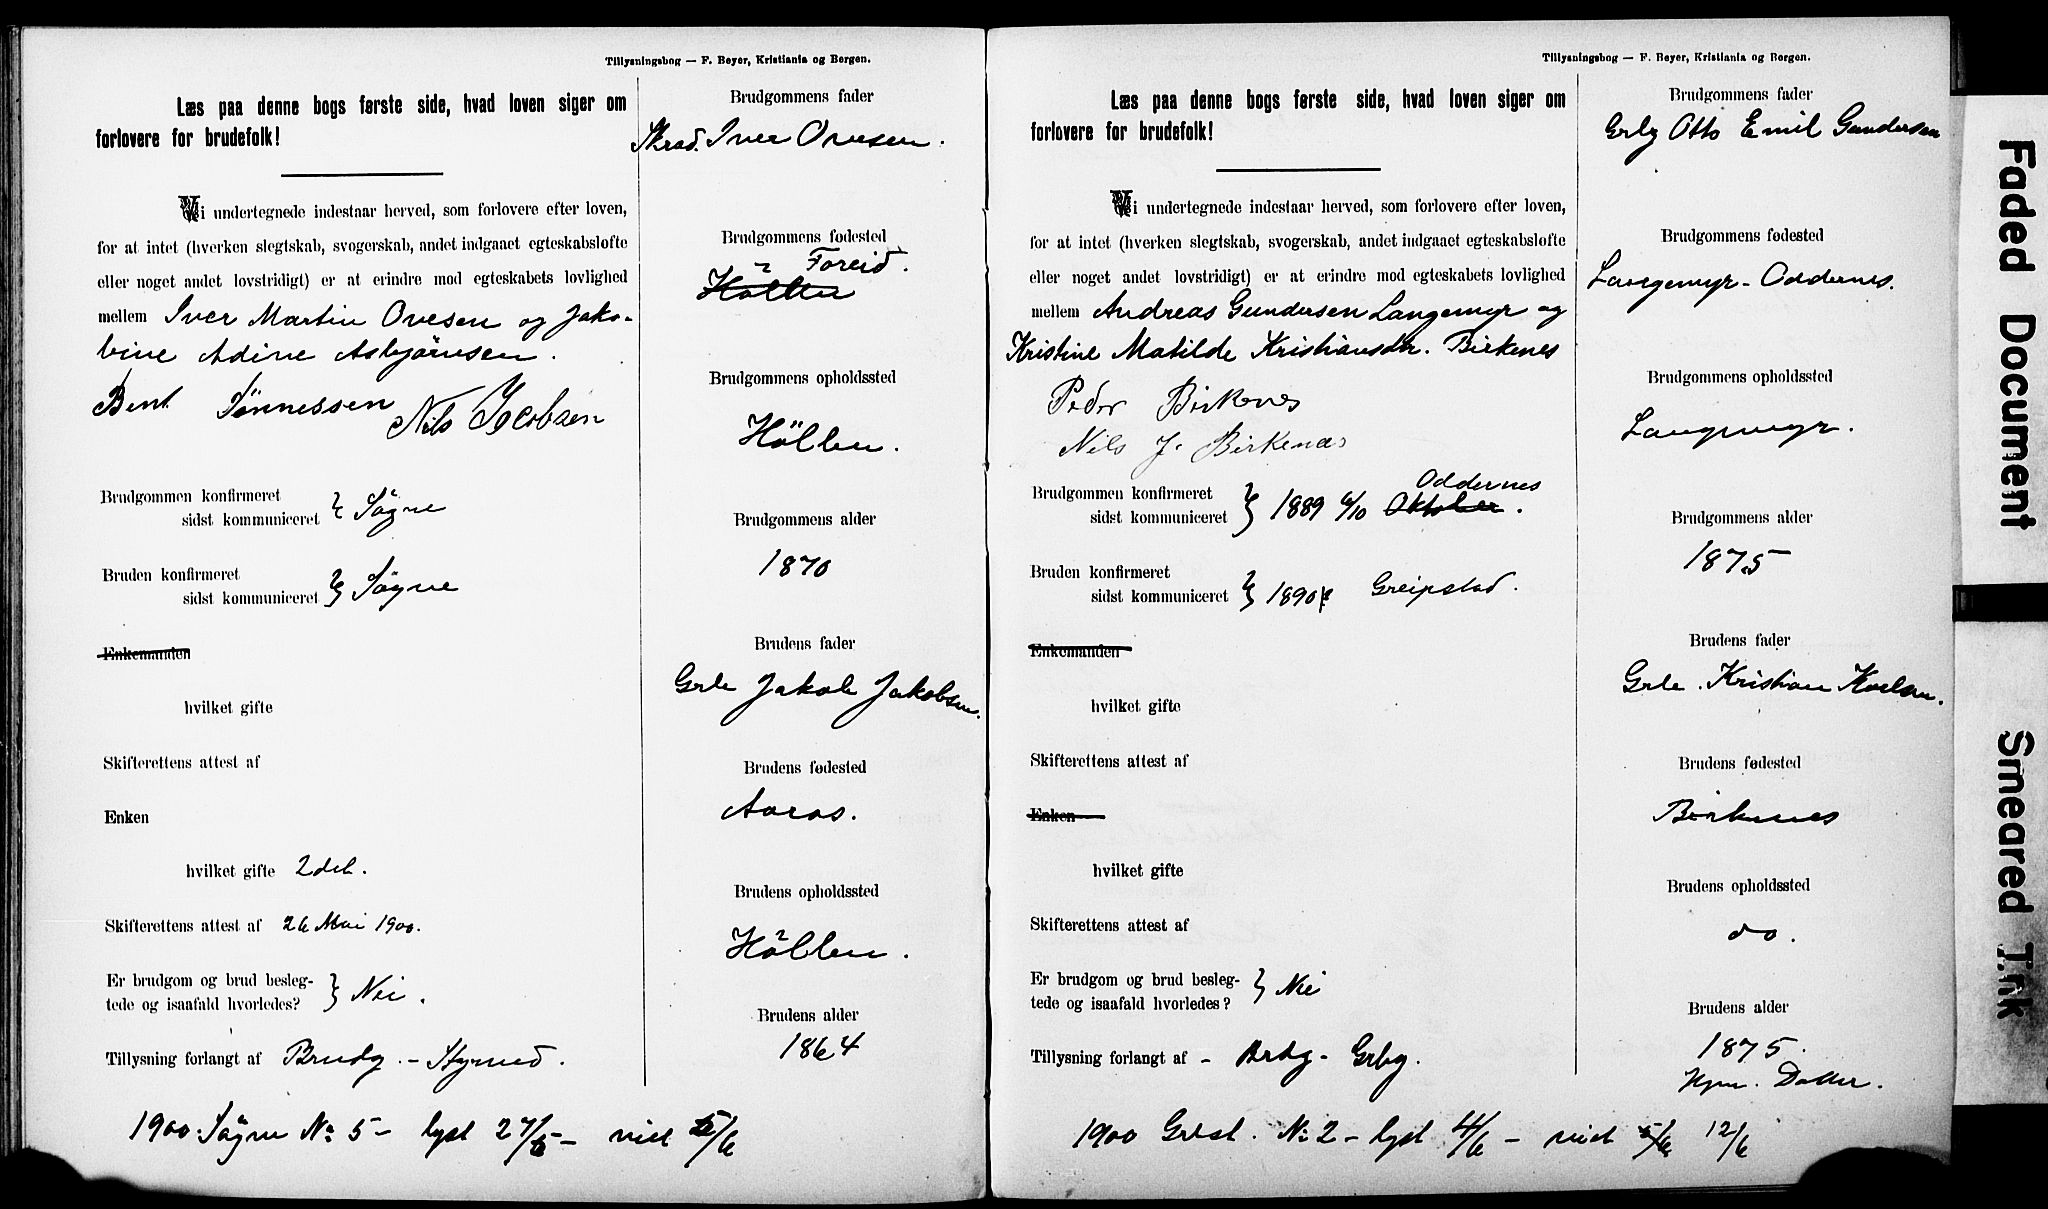 Tillysningsbog — F. Beyer, Kristiania og Bergen.
Læs paa denne bogs første side, hvad loven siger om
forlovere for brudefolk!
Vi undertegnede indestaar herved, som forlovere efter loven,
for at intet (hverken slegtskab, svogerskab, andet indgaaet egteskabsløfte
eller noget andet lovstridigt) er at erindre mod egteskabets lovlighed
mellem Iver Martin Ovesen og Jako-
bine Adine Asbjörnsen.
Bent Tönnessen Nils Jacobsen
Brudgommen konfirmeret
sidst kommuniceret } Sögne
Bruden konfirmeret
sidst kommuniceret } Sögne
Enkemanden
hvilket gifte
Skifterettens attest af
Enken
hvilket gifte 2det.
Skifterettens attest af 26 Mai 1900.
Er brudgom og brud besleg-
tede og isaafald hvorledes? } Nei.
Tillysning forlangt af Brudg. -
1900 Sögne No 5 - lyst 27/5 - viet 5/6
Brudgommens fader
Iver Ovesen.
Brudgommens fødested
Foreid.
Höllen
Brudgommens opholdssted
Höllen.
Brudgommens alder
1870
Brudens fader
Grbr Jakob Jakobsen.
Brudens fødested
Aaros.
Brudens opholdssted
Höllen.
Brudens alder
1864
Tillysningsbog — F. Beyer, Kristiania og Bergen.
Læs paa denne bogs første side, hvad loven siger om
forlovere for brudefolk!
Vi undertegnede indestaar herved, som forlovere efter loven,
for at intet (hverken slegtskab, svogerskab, andet indgaaet egteskabsløfte
eller noget andet lovstridigt) er at erindre mod egteskabets lovlighed
mellem Andreas Gundersen Langemyr og
Kristine Matilde Kristiansdtr. Birkenes
Peder Birkenes
Nils J. Birkenes
Oddernes
Brudgommen konfirmeret
sidst kommuniceret } 1889 6/10 Oktober.
Bruden konfirmeret
sidst kommuniceret } 1890 Greipstad.
Enkemanden
hvilket gifte
Skifterettens attest af
Enken
hvilket gifte
Skifterettens attest af
Er brudgom og brud besleg-
tede og isaafald hvorledes? } Nei
Tillysning forlangt af - Brdg - Grbg.
1900 Grbst. No 2 - lyst 4/6 - viet 5/6 12/6
Brudgommens fader
Grbg Otto Emil Gundersen
Brudgommens fødested
Langemyr - Oddernes.
Brudgommens opholdssted
Langemyr.
Brudgommens alder
1875
Brudens fader
Grbr. Kristian
Brudens fødested
Birkenes
Brudens opholdssted
do.
Brudens alder
1875.
Hjm. Datter.
Faded Document
Smeared Ink